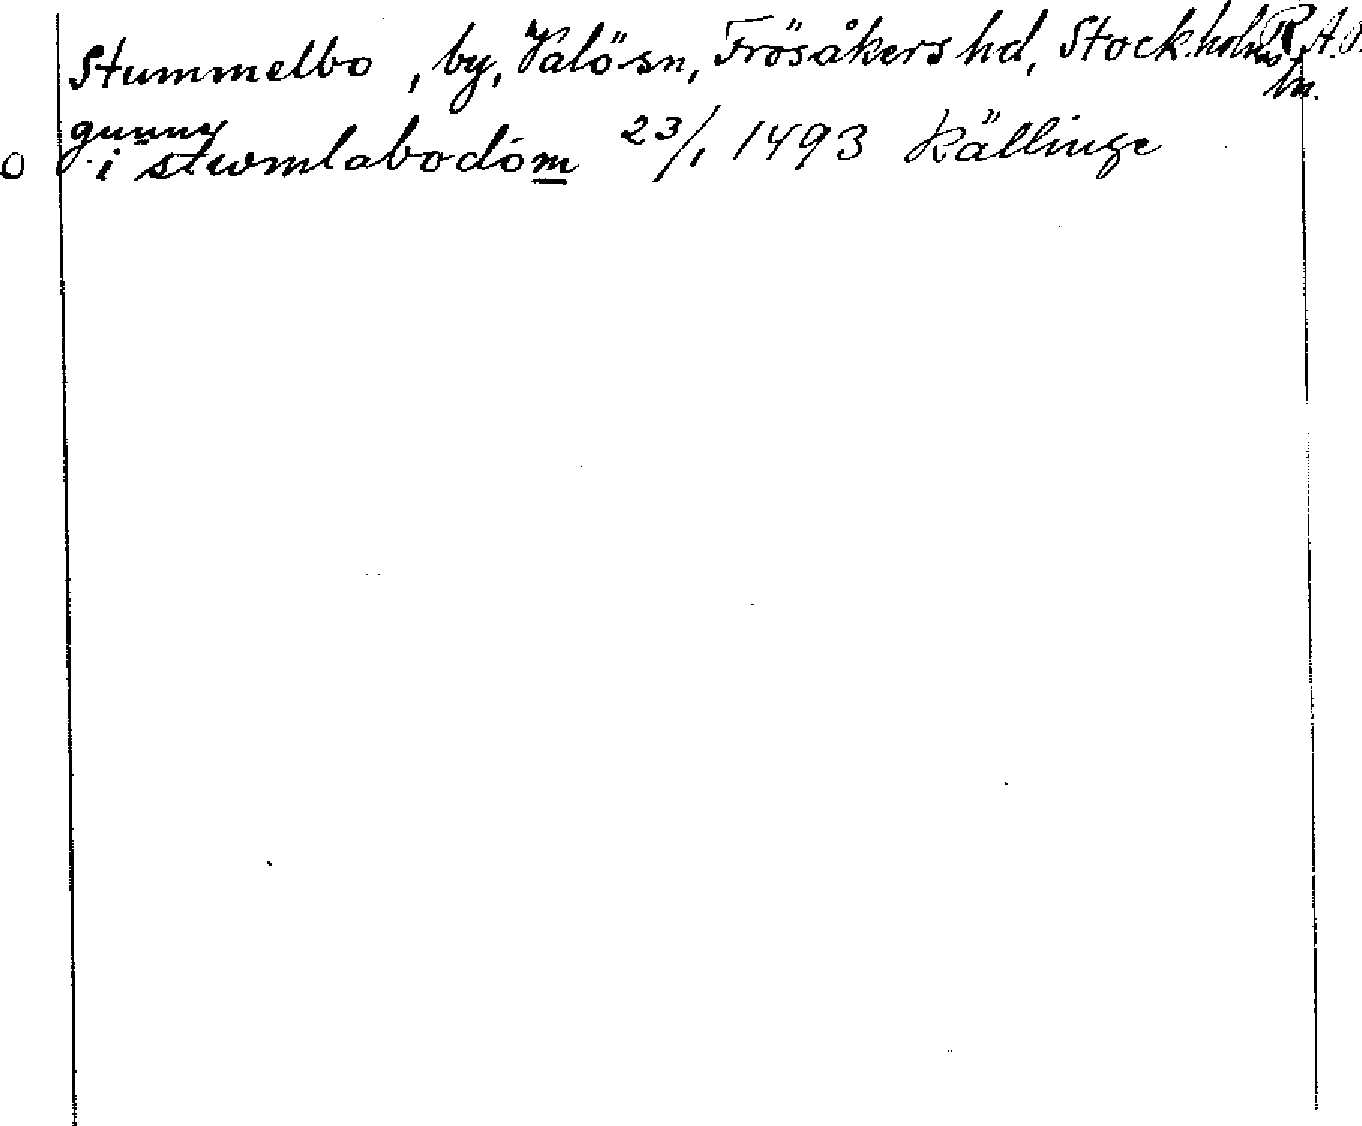 Stummelbo, by, Valö sn, Frösåkers hd, Stockholms R.A.P.
län.
gunny
o i stwmlabodóm 23/1 1493 Källinge